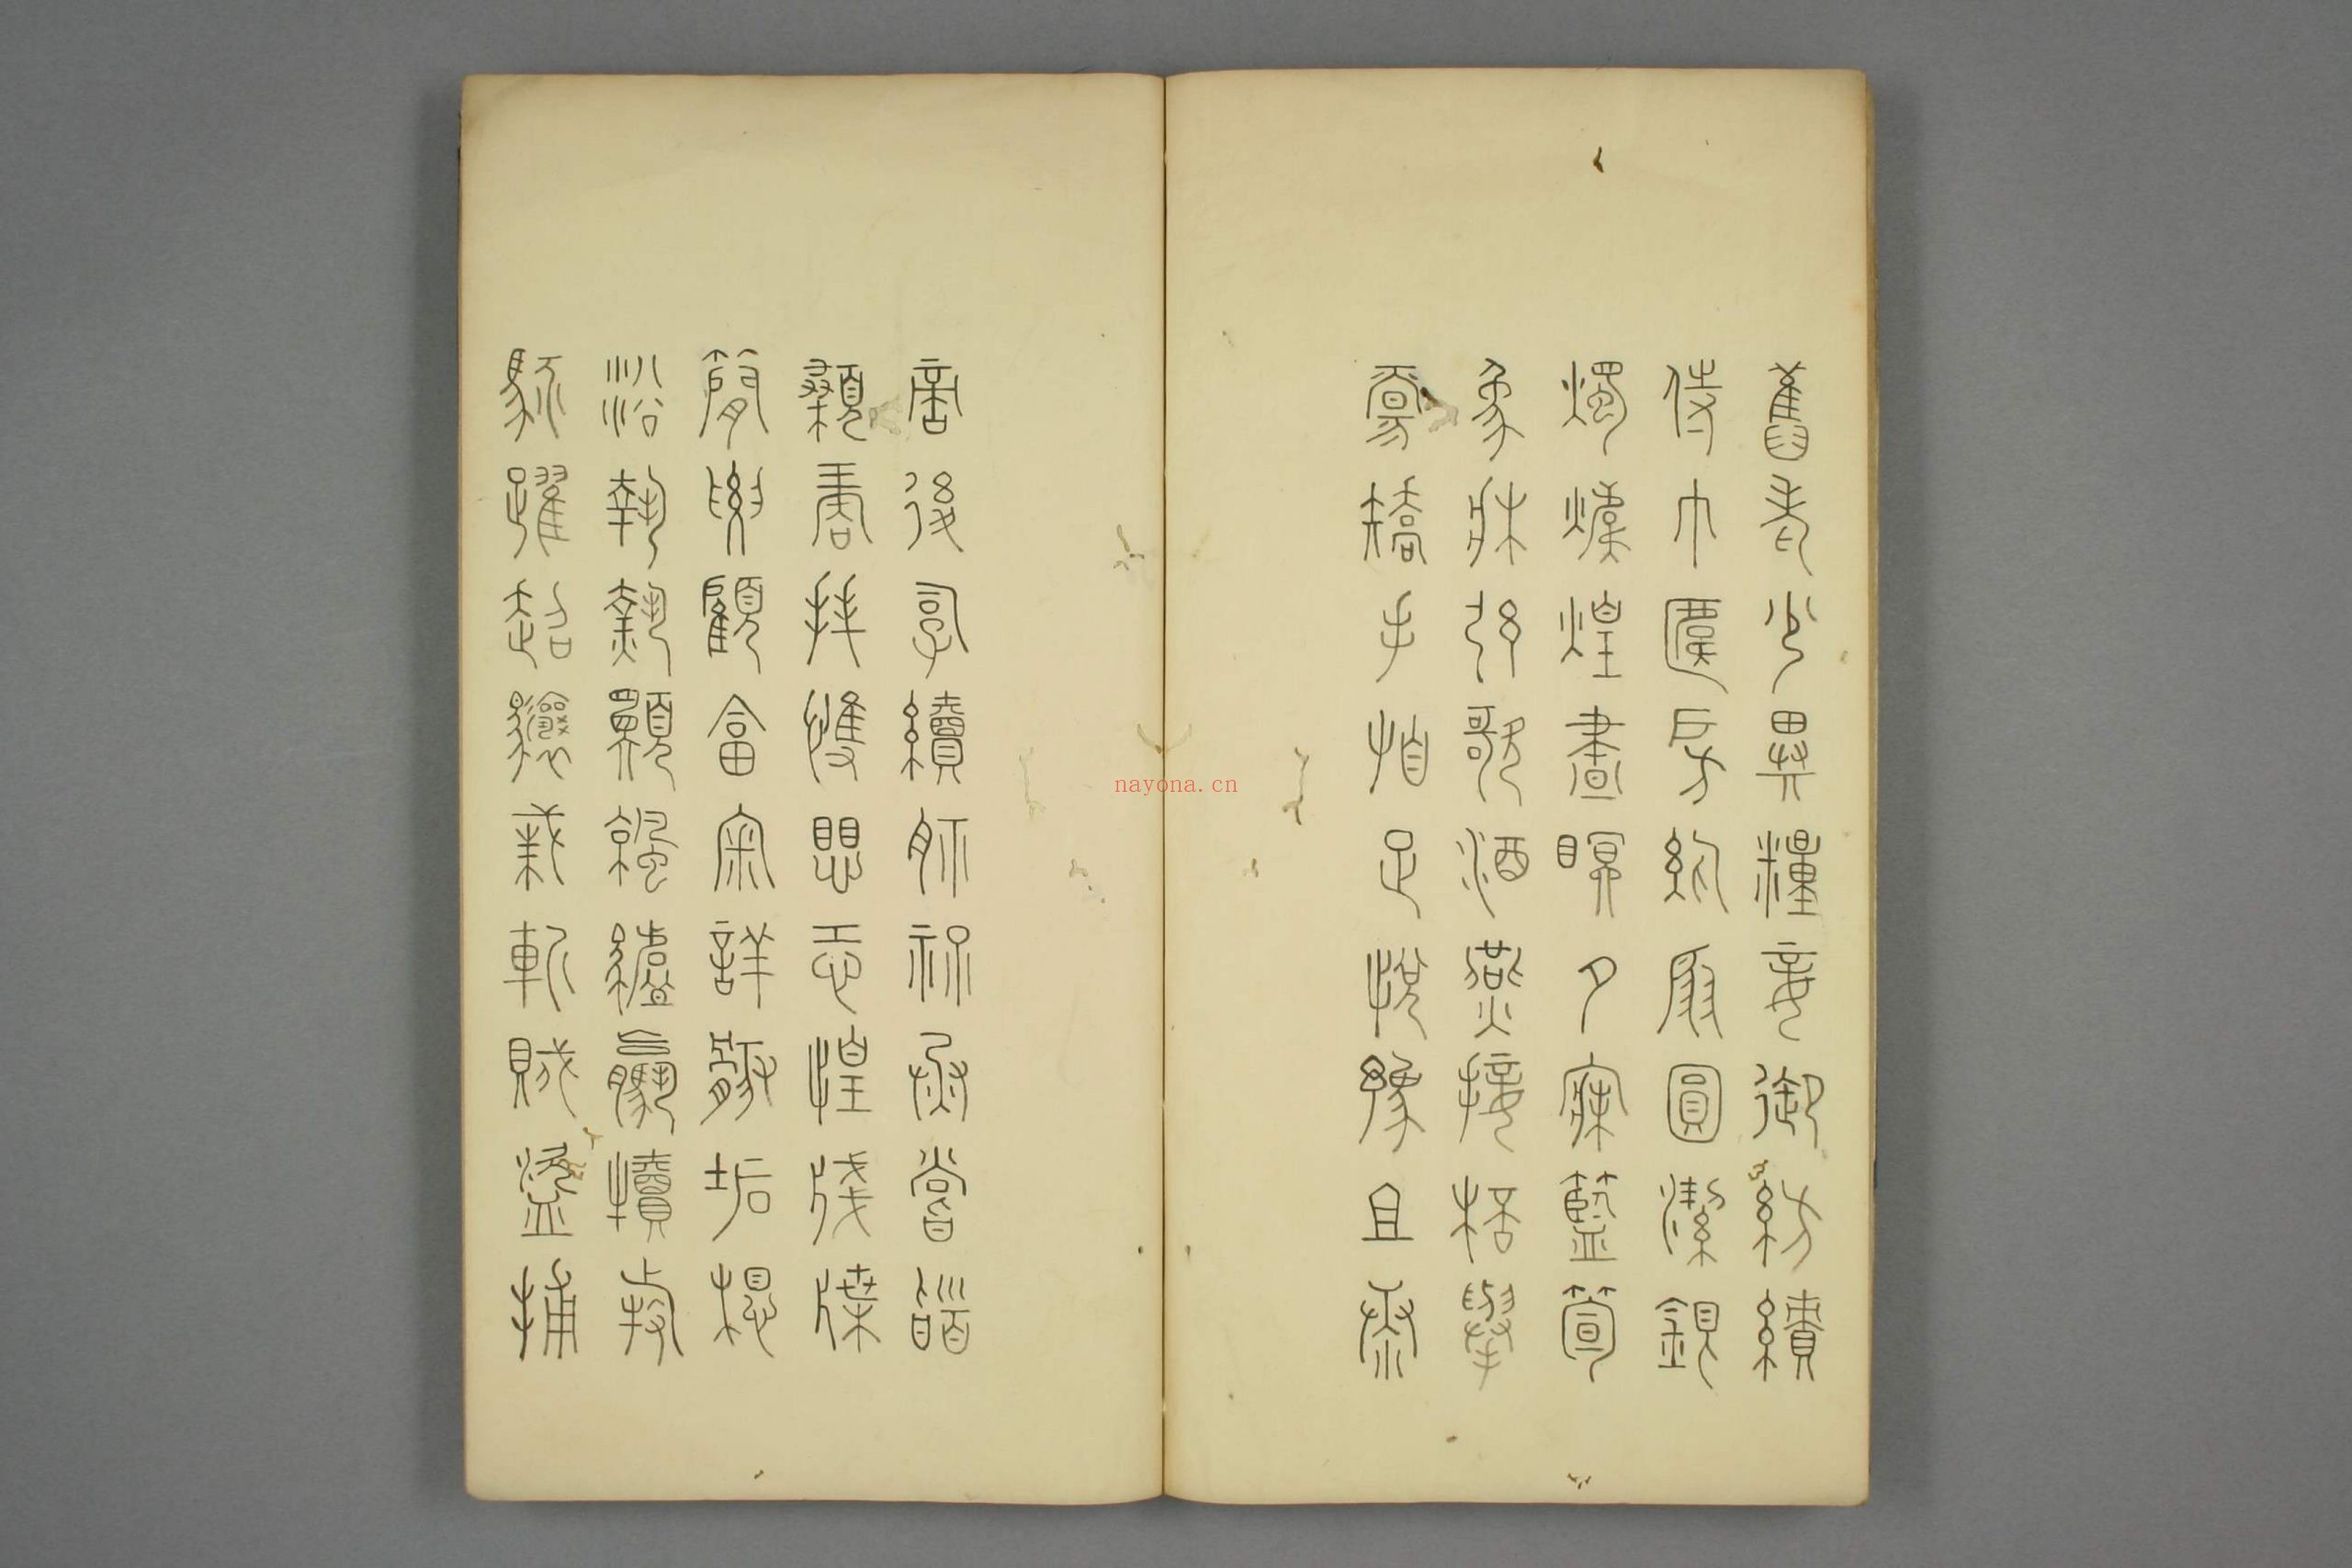 舊老少異糧妾御紡績
侍巾帷房紈扇圓潔銀
燭煒煌晝瞑夕寐藍筍
象床弦歌酒讌接杯舉
觴矯手頓足悅豫且康
嫡後嗣續祭祀烝嘗稽
顙再拜悚懼恐惶牋牒
簡要顧答審詳骸垢想
浴執熱願涼驢騾犢特
駭躍超驤誅斬賊盜捕
nayona.cn